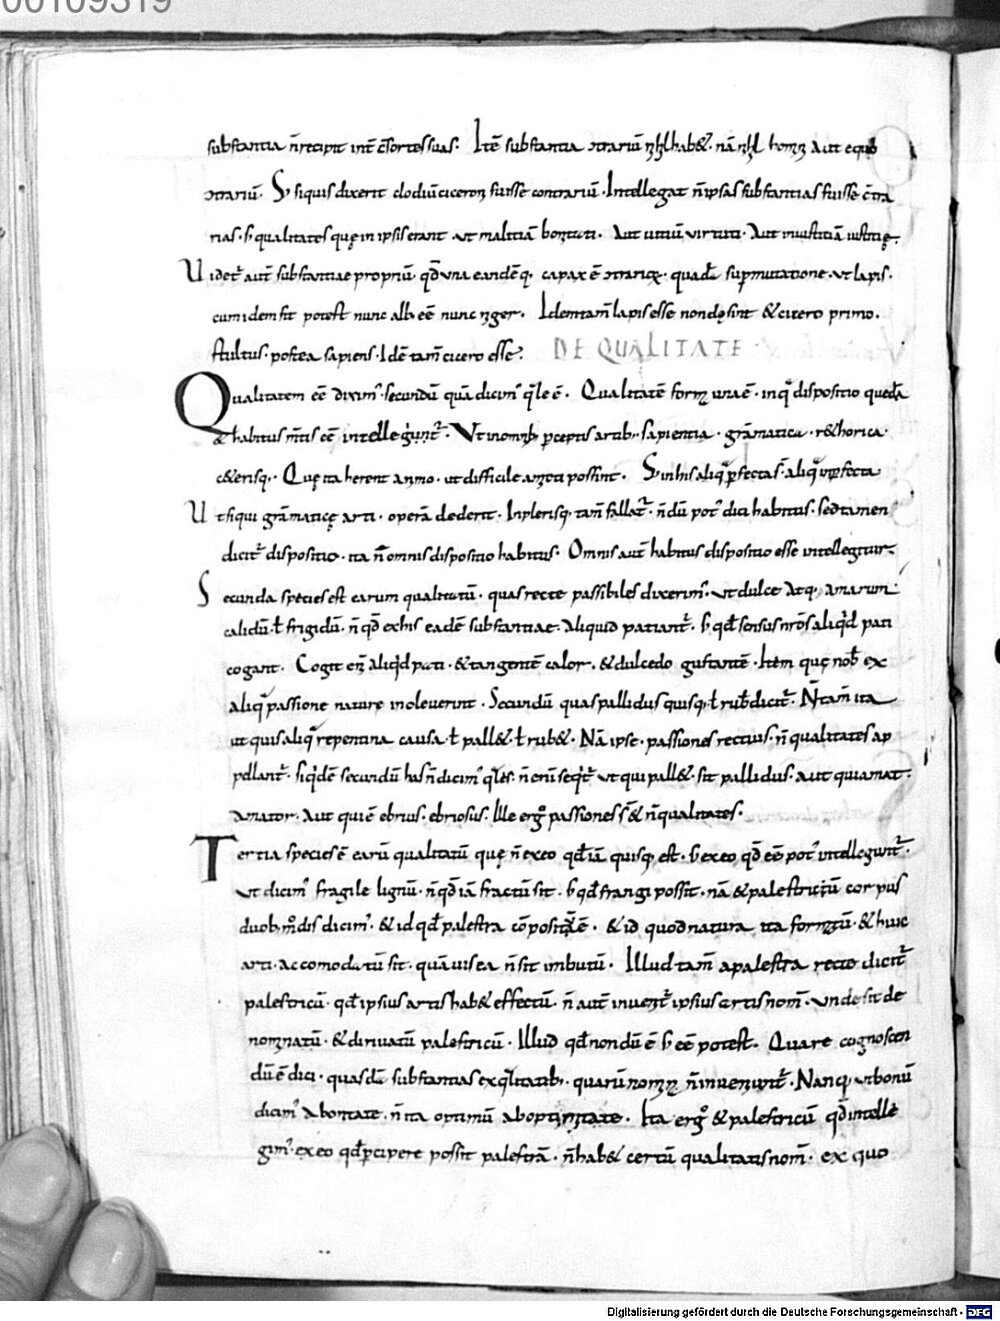 00109319
substantia n̄ recipit int̄ c̄sortes suas. Itē substantia ↄtrariū nihil hab&. nā nihil homini aut equo
ↄtrariū. S; siquis dixerit clodiū ciceroni fuisse contrariū. Intellegat n̄ ipsas substantias fuisse c̄tra
rias. s; qualitates quę in ipsis erant. ut malitiā bonitati. Aut uitiū uirtuti. Aut iniustitiā iustitię.
Uidet᷑ aut̄ substantiae propriū qđ una eandēq; capax ē ↄtrariorꝝ. quadā sup̄mutatione. ut lapis
cum idem sit potest nunc alb; eē nunc niger. Idem tam̄ lapis esse non desinit & cicero primo
stultus. postea sapiens. Idē tam̄ cicero esse.
DE QUALITATE
Qualitatem eē diximꝰ secundū quā dicimꝰ q̄le ē. Qualitatē formę una ē. in qͣ dispositio quedā
& habitus mtis eē intellegunt᷑. Ut in omnib; p̄ceptis artib; sapientia. grāmatica. r&horica.
c&erisq;. Quę ita herent animo. ut difficile amoti possint. S; in his aliqͣ p̄fecta s̄. aliqͣ inp̄fecta
Ut siqui grāmaticę arti. operā dederit. In plerisq; tam̄ fallat᷑. n̄dū potꝰ dici habitus. sed tamen
dicit᷑ dispositio. ita n̄ omnis dispositio habitus. Omnis aut̄ habitus dispositio esse intellegitur.
Secunda species est earum qualitatū. quas recte passibiles dixerimꝰ. ut dulce atq; amarum
calidū ł frigidū. n̄ qđ ex his eadē substantiae. aliquid patiant᷑. s; qđ sensus nr̄os aliqͥd pati
cogant. Cogit eni aliqͥd pati. & tangentē calor. & dulcedo gustantē. Item quę nob ex
aliqͣ passione naturę inoleuerint. Secundū quas pallidus quisq; ł rub; dicit᷑. N̄ tam̄ ita
ut quis aliqͣ repentina causa ł pall& ł rub&. Nā ipse. passiones rectius. n̄ qualitates ap
pellant᷑. siqͥdē secundū has n̄ dicimꝰ q̄les. n̄ enī seqͥt᷑ ut qui pall&. sit pallidus. aut qui amat.
amator. Aut qui ē ebrius. ebriosus. Ille ergͦ passiones s̄ & n̄ qualitates.
Tertia species ē earū qualitatū quę n̄ ex eo qđ iā quisq; est. s; ex eo qđ eē potꝰ intellegunt᷑.
Ut dicimꝰ fragile lignū. n̄ qđ iā fractū sit. s; qđ frangi possit. nā & palestricū corpus
duob; mͦdis dicimꝰ. & id qđ palestra cōpositū ē. & id quod natura ita formatū. & huic
arti. accomodatū sit. quāuis ea n̄ sit imbutū. Illud tam̄ a palestra recte dicit᷑
palestricū. qđ ipsius artis hab& effectū. n̄ aut̄ inuenit᷑ ipsius artis nom̄. unde sit de
nominatū. & diriuatū palestricū. Illud qđ nondū ē s; eē potest. Quare cognoscen
dū ē dici. quasdā substantias ex q̄litatib;. quarū nomina n̄ inueniunt᷑. Nanq; ut bonū
dicimꝰ a bonitate. n̄ ita optimū ab optimitate. Ita ergͦ & palestricū qđ intelle
gimꝰ ex eo qđ p̄cipere possit palestrā. n̄ hab& certū qualitatis nom̄. ex quo
Digitalisierung gefördert durch die Deutsche Forschungsgemeinschaft - DFG